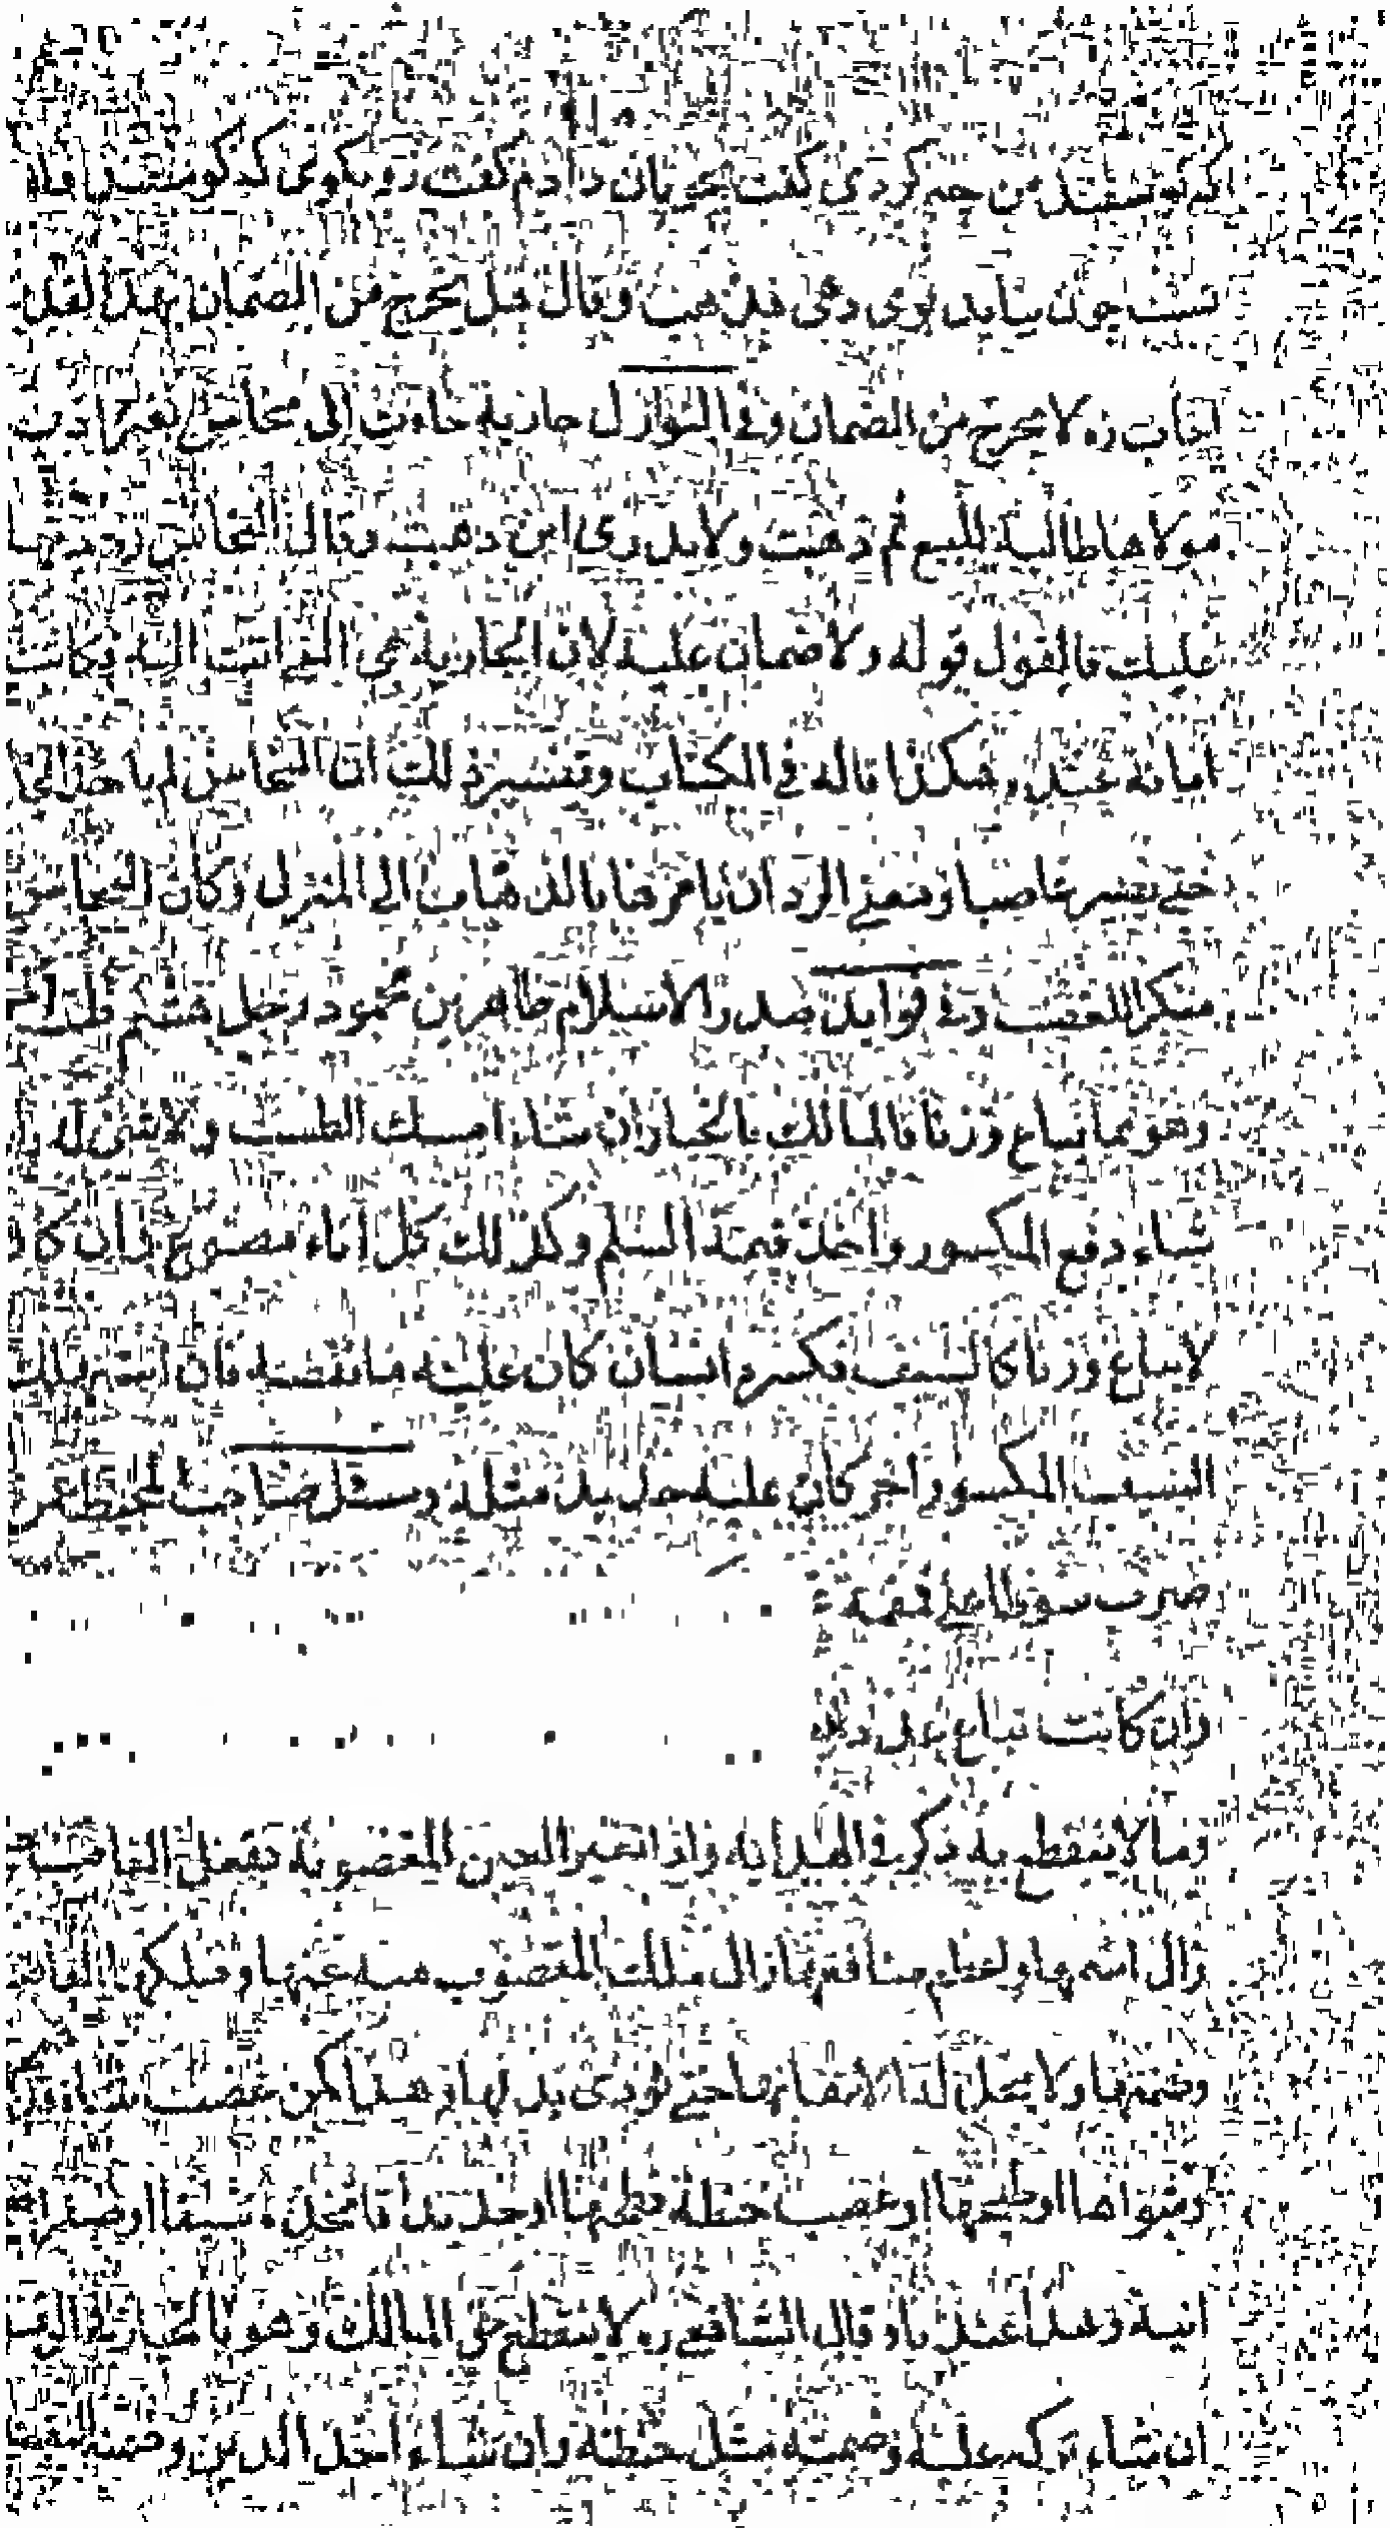 كه سفيد من چه كردى كفت بخربان دادم كفت رو بكوى كه كوسفند
نيست چون بيايد بوى دهى فذهب وقال هل يخرج من الضمان بهذا القدر
اجاب ره لا يخرج من الضمان وفي النوازل جارية جاءت الى نخاس بغير اذن
مولاها طالبة للبيع ثم ذهبت ولا يدرى اين ذهبت وقال النخاس رددتها
عليك فالقول قوله ولا ضمان عليه لان الجارية هى التي اتت اليه فكانت
امانة عنده هكذا قاله في الكتاب وتفسير ذلك ان النخاس لم ياخذ الجارية
حتى يصير غاصبا ومعنى الرد ان يامرها بالذهاب الى المنزل وكان النخاس
منكرا للغصب وفي فوايد صدر الاسلام طاهر بن محمود رجل هشم طست
وهو مما يباع وزنا فالمالك بالخيار ان شاء امسك الطست ولا شئ له
شاء دفع المكسور واخذ قيمة السلم وكذلك كل اناء مصوغ وان كان
لا يباع وزنا كالسيف فكسره انسان كان عليه ما نقصه فان استهلك
السيف المكسور اخر كان عليه حديد مثله وسئل صاحب المحيط عمن
صرف
وان كانت تباع
وما لا ينقطع به ذكر في الهداية واذا تغير العين المغصوبة بفعل الغاصب
زال اسمها وعظم منافعها زال ملك المغصوب منه عنها وملكها الغاصب
وضمنها ولا يحل له الانتفاع بها حتى يودى بدلها وهذا كمن غصب شاة وذبحها
وشواها او طبخها او غصب حنطة فطحنها او حديدا فاتخذه سيفا او صفرا
انية وهذا عندنا وقال الشافعى ره لا ينقطع حق المالك وهو بالخيار في الدقيق
ان شاء تركه عليه وضمنه مثل حنطة وان شاء اخذ الدقيق وضمنه